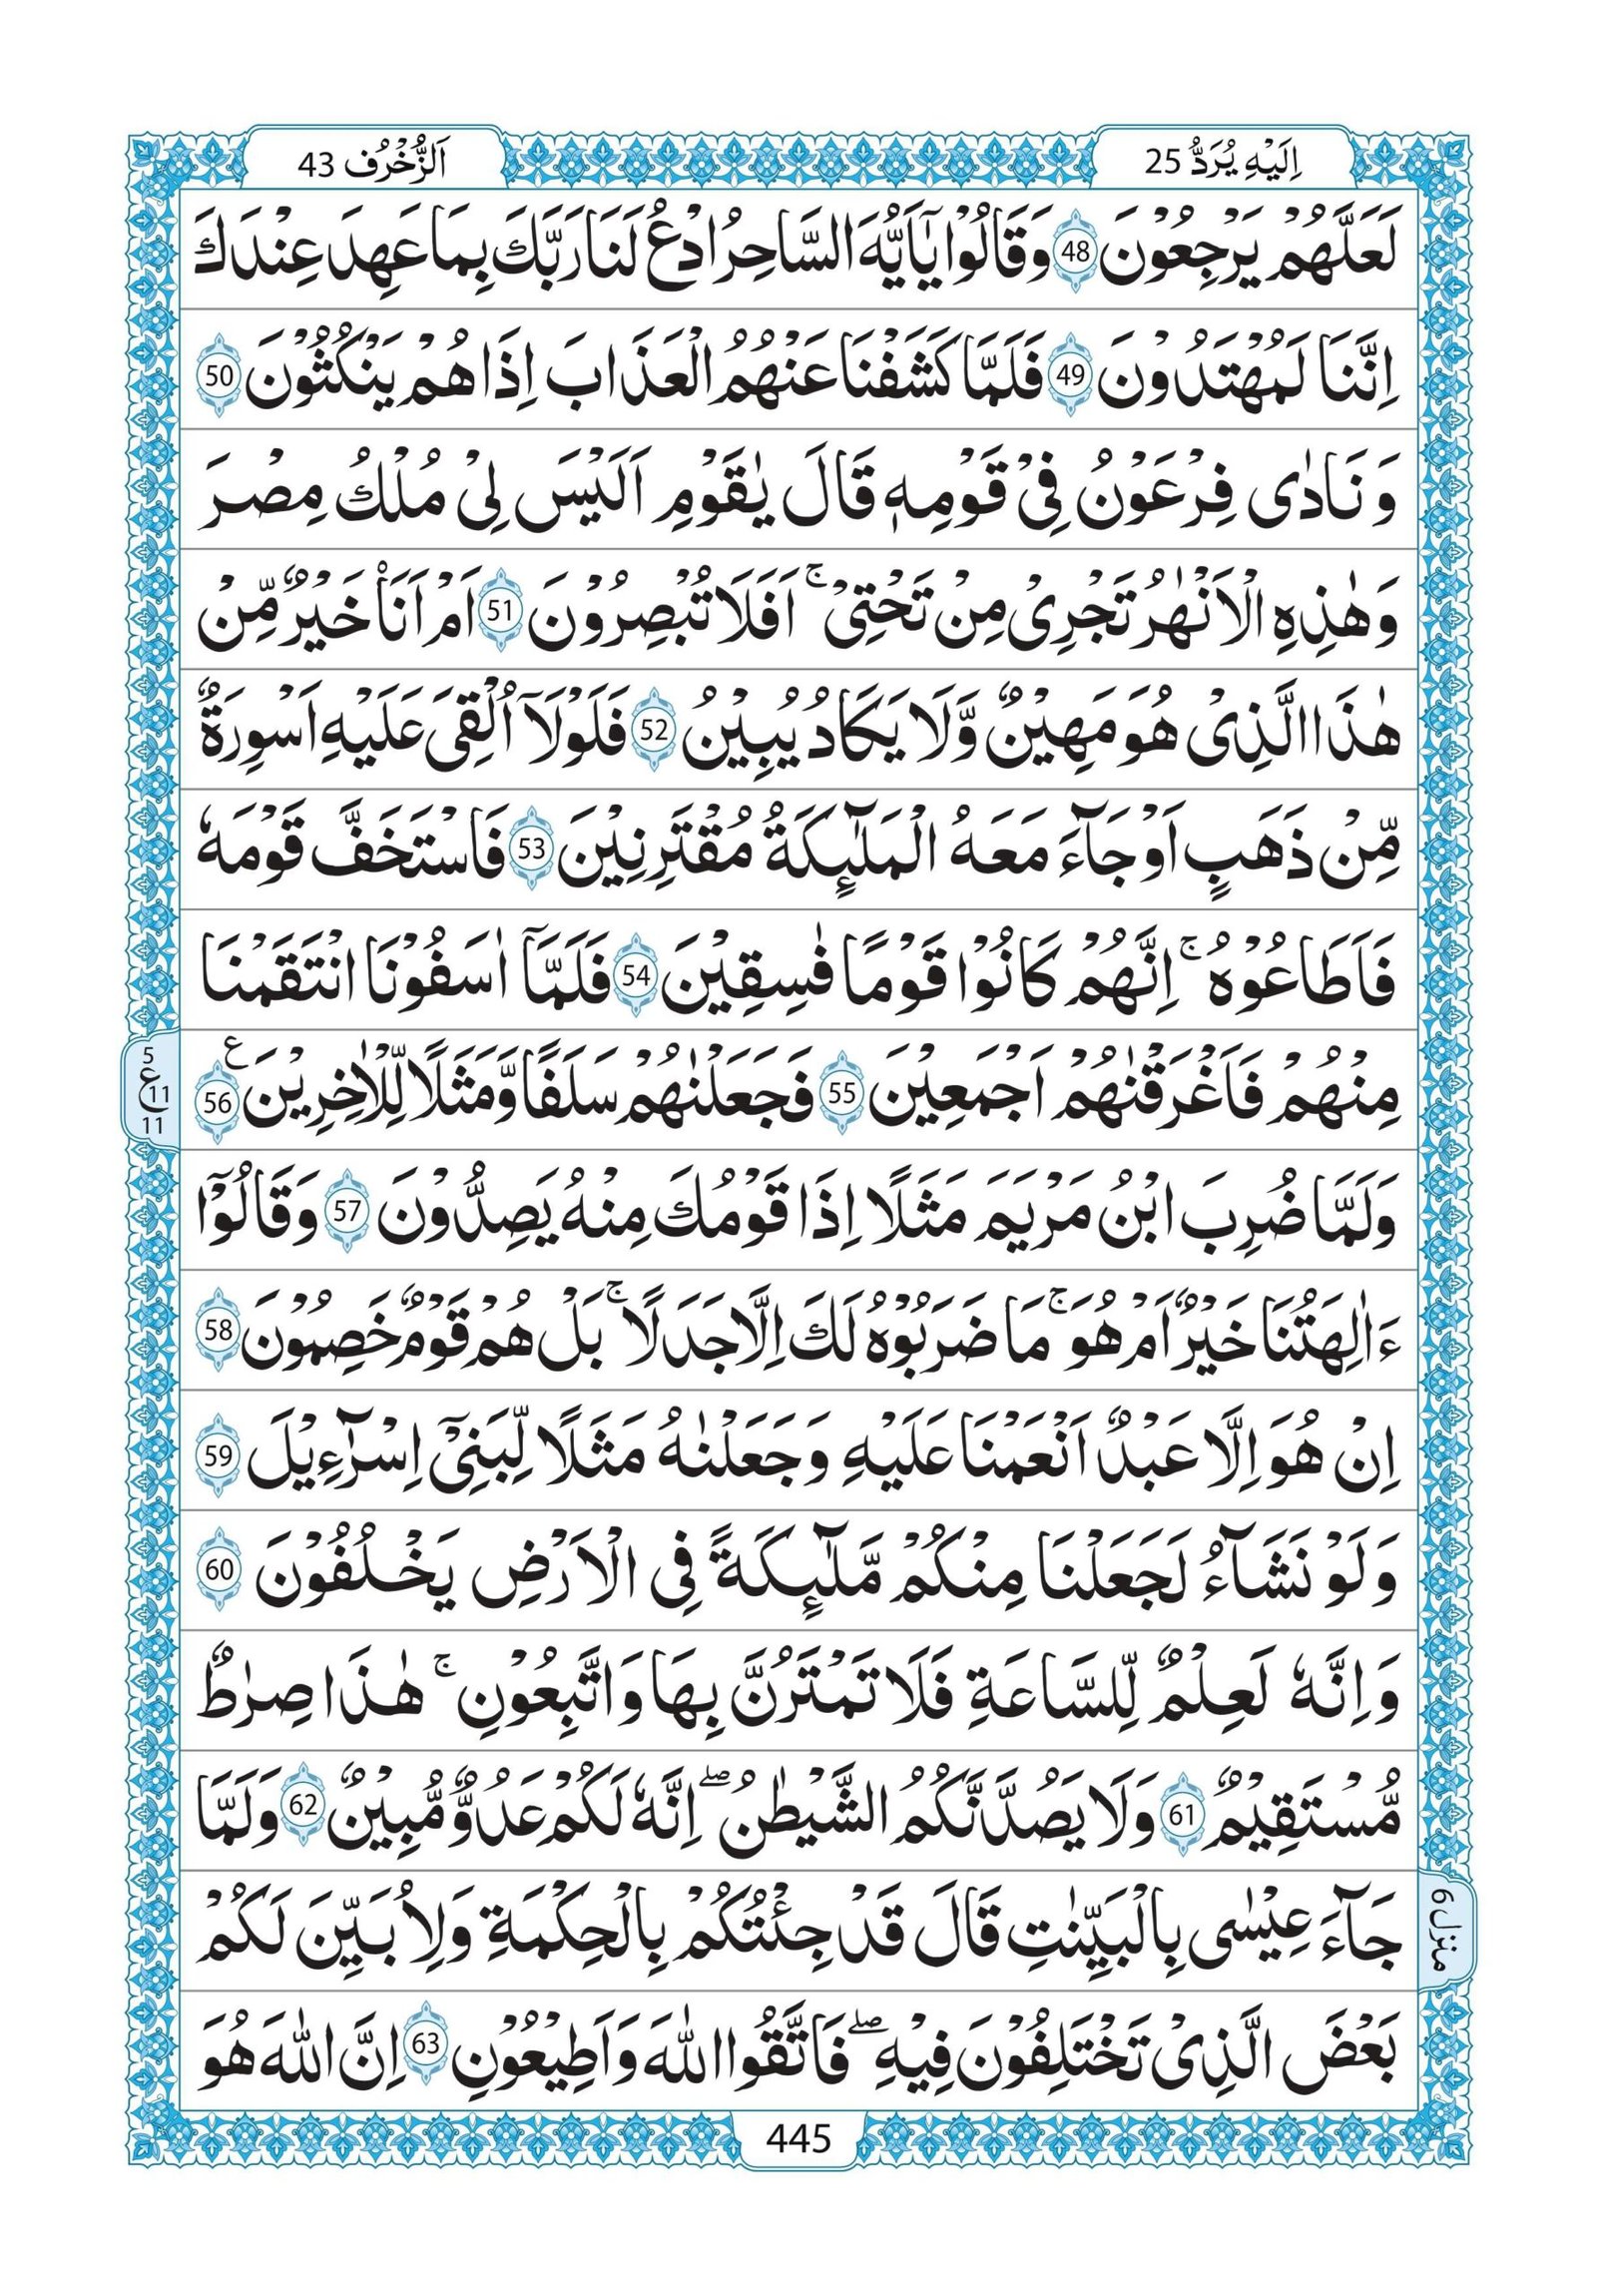 اِلَيْهِ يُرَدُّ 25
اَلزُّخْرُف 43
لَعَلَّهُمْ يَرْجِعُوْنَ 48 وَقَالُوْا يٰۤاَيُّهَ السَّاحِرُ ادْعُ لَنَا رَبَّكَ بِمَا عَهِدَ عِنْدَكَ
اِنَّنَا لَمُهْتَدُوْنَ 49 فَلَمَّا كَشَفْنَا عَنْهُمُ الْعَذَابَ اِذَا هُمْ يَنْكُثُوْنَ 50
وَ نَادٰى فِرْعَوْنُ فِيْ قَوْمِهٖ قَالَ يٰقَوْمِ اَلَيْسَ لِيْ مُلْكُ مِصْرَ
وَهٰذِهِ الْاَنْهٰرُ تَجْرِيْ مِنْ تَحْتِيْ ۚ اَفَلَا تُبْصِرُوْنَ 51 اَمْ اَنَا۠ خَيْرٌ مِّنْ
هٰذَا الَّذِيْ هُوَ مَهِيْنٌ وَّلَا يَكَادُ يُبِيْنُ 52 فَلَوْلَاۤ اُلْقِيَ عَلَيْهِ اَسْوِرَةٌ
مِّنْ ذَهَبٍ اَوْ جَآءَ مَعَهُ الْمَلٰٓئِكَةُ مُقْتَرِنِيْنَ 53 فَاسْتَخَفَّ قَوْمَهٗ
فَاَطَاعُوْهُ ۚ اِنَّهُمْ كَانُوْا قَوْمًا فٰسِقِيْنَ 54 فَلَمَّاۤ اٰسَفُوْنَا انْتَقَمْنَا
مِنْهُمْ فَاَغْرَقْنٰهُمْ اَجْمَعِيْنَ 55 فَجَعَلْنٰهُمْ سَلَفًا وَّمَثَلًا لِّلْاٰخِرِيْنَ ع 56
5
ع 11
11
وَلَمَّا ضُرِبَ ابْنُ مَرْيَمَ مَثَلًا اِذَا قَوْمُكَ مِنْهُ يَصِدُّوْنَ 57 وَقَالُوْۤا
ءَاٰلِهَتُنَا خَيْرٌ اَمْ هُوَ ۚ مَا ضَرَبُوْهُ لَكَ اِلَّا جَدَلًا ۚ بَلْ هُمْ قَوْمٌ خَصِمُوْنَ 58
اِنْ هُوَ اِلَّا عَبْدٌ اَنْعَمْنَا عَلَيْهِ وَجَعَلْنٰهُ مَثَلًا لِّبَنِيْۤ اِسْرَآءِيْلَ 59
وَلَوْ نَشَآءُ لَجَعَلْنَا مِنْكُمْ مَّلٰٓئِكَةً فِي الْاَرْضِ يَخْلُفُوْنَ 60
وَاِنَّهٗ لَعِلْمٌ لِّلسَّاعَةِ فَلَا تَمْتَرُنَّ بِهَا وَاتَّبِعُوْنِ ۚ هٰذَا صِرٰطٌ
مُّسْتَقِيْمٌ 61 وَلَا يَصُدَّنَّكُمُ الشَّيْطٰنُ ۖ اِنَّهٗ لَكُمْ عَدُوٌّ مُّبِيْنٌ 62 وَلَمَّا
جَآءَ عِيْسٰى بِالْبَيِّنٰتِ قَالَ قَدْ جِئْتُكُمْ بِالْحِكْمَةِ وَلِاُبَيِّنَ لَكُمْ
منزل 6
بَعْضَ الَّذِيْ تَخْتَلِفُوْنَ فِيْهِ ۖ فَاتَّقُوا اللّٰهَ وَاَطِيْعُوْنِ 63 اِنَّ اللّٰهَ هُوَ
445